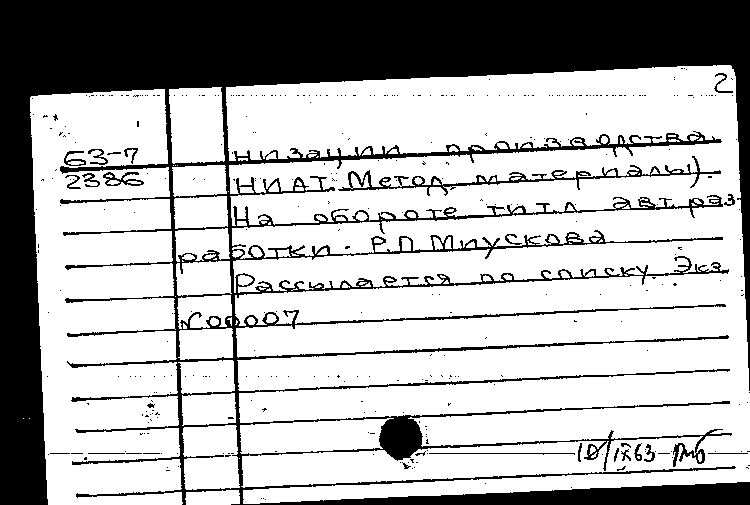 2
63-7 низации производства.
2386 НИАТ. Метод. материалы).
На обороте тит.л авт. раз-
работки - Р.П. Миускова
Рассылается по списку Экз.
№00007
10/IX63